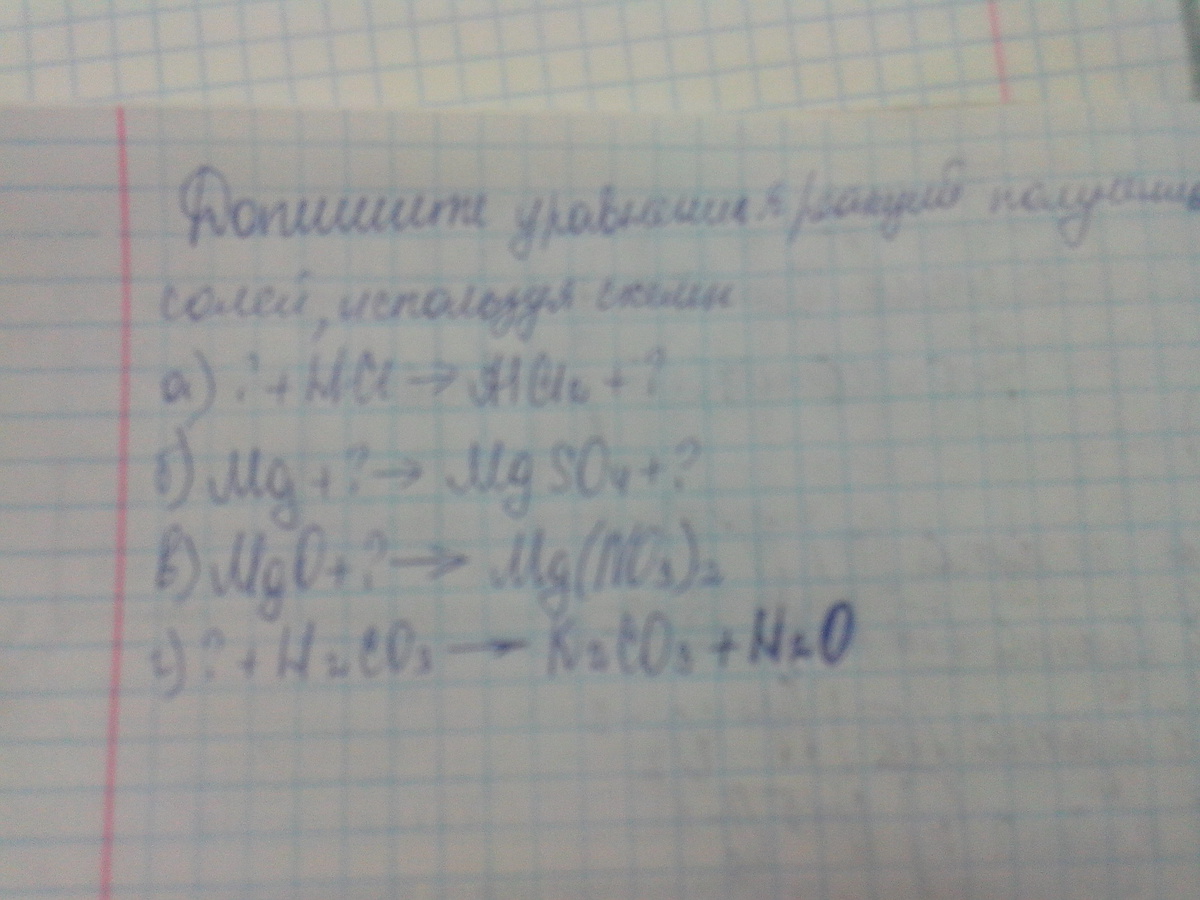 Допишите уравнения реакций получения
солей, используя схемы
а) ? + HCl → AlCl₂ + ?
б) Mg + ? → MgSO₄ + ?
в) MgO + ? → Mg(NO₃)₂
г) ? + H₂CO₃ → K₂CO₃ + H₂O